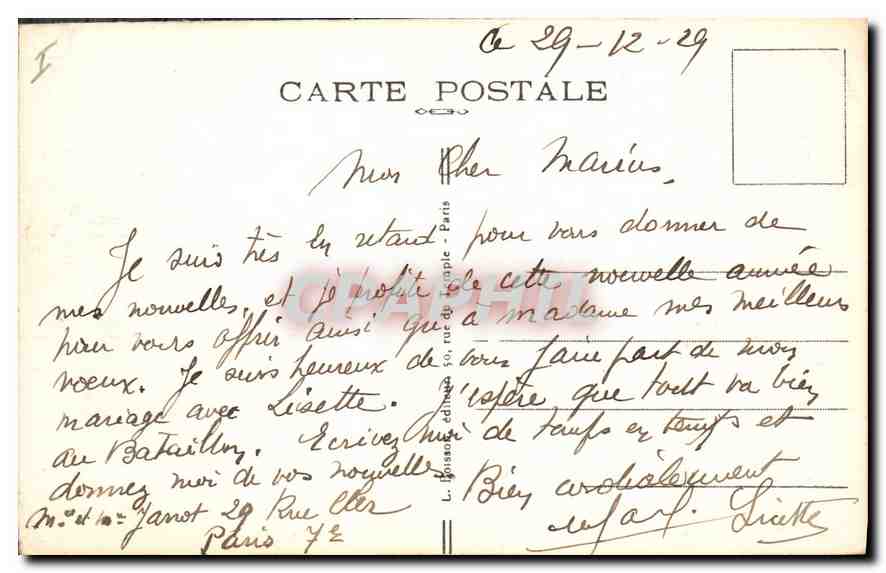 I
Ce 29-12-29
CARTE POSTALE
Mon Cher Marius,
Je suis très en retard pour vous donner de
mes nouvelles, et je profite de cette nouvelle année
pour vous offrir ainsi qu'à madame mes meilleurs
voeux. Je suis heureux de vous faire part de mon
mariage avec Lisette. J'espère que tout va bien
au Bataillon. Ecrivez moi de temps en temps et
donnez moi de vos nouvelles
Bien cordialement
Mr et Mme Jarrot 29 Rue Cler
Paris 7e
Lisette
L. Boisson, éditeur, 50, rue du Temple - Paris
CPAPHIL